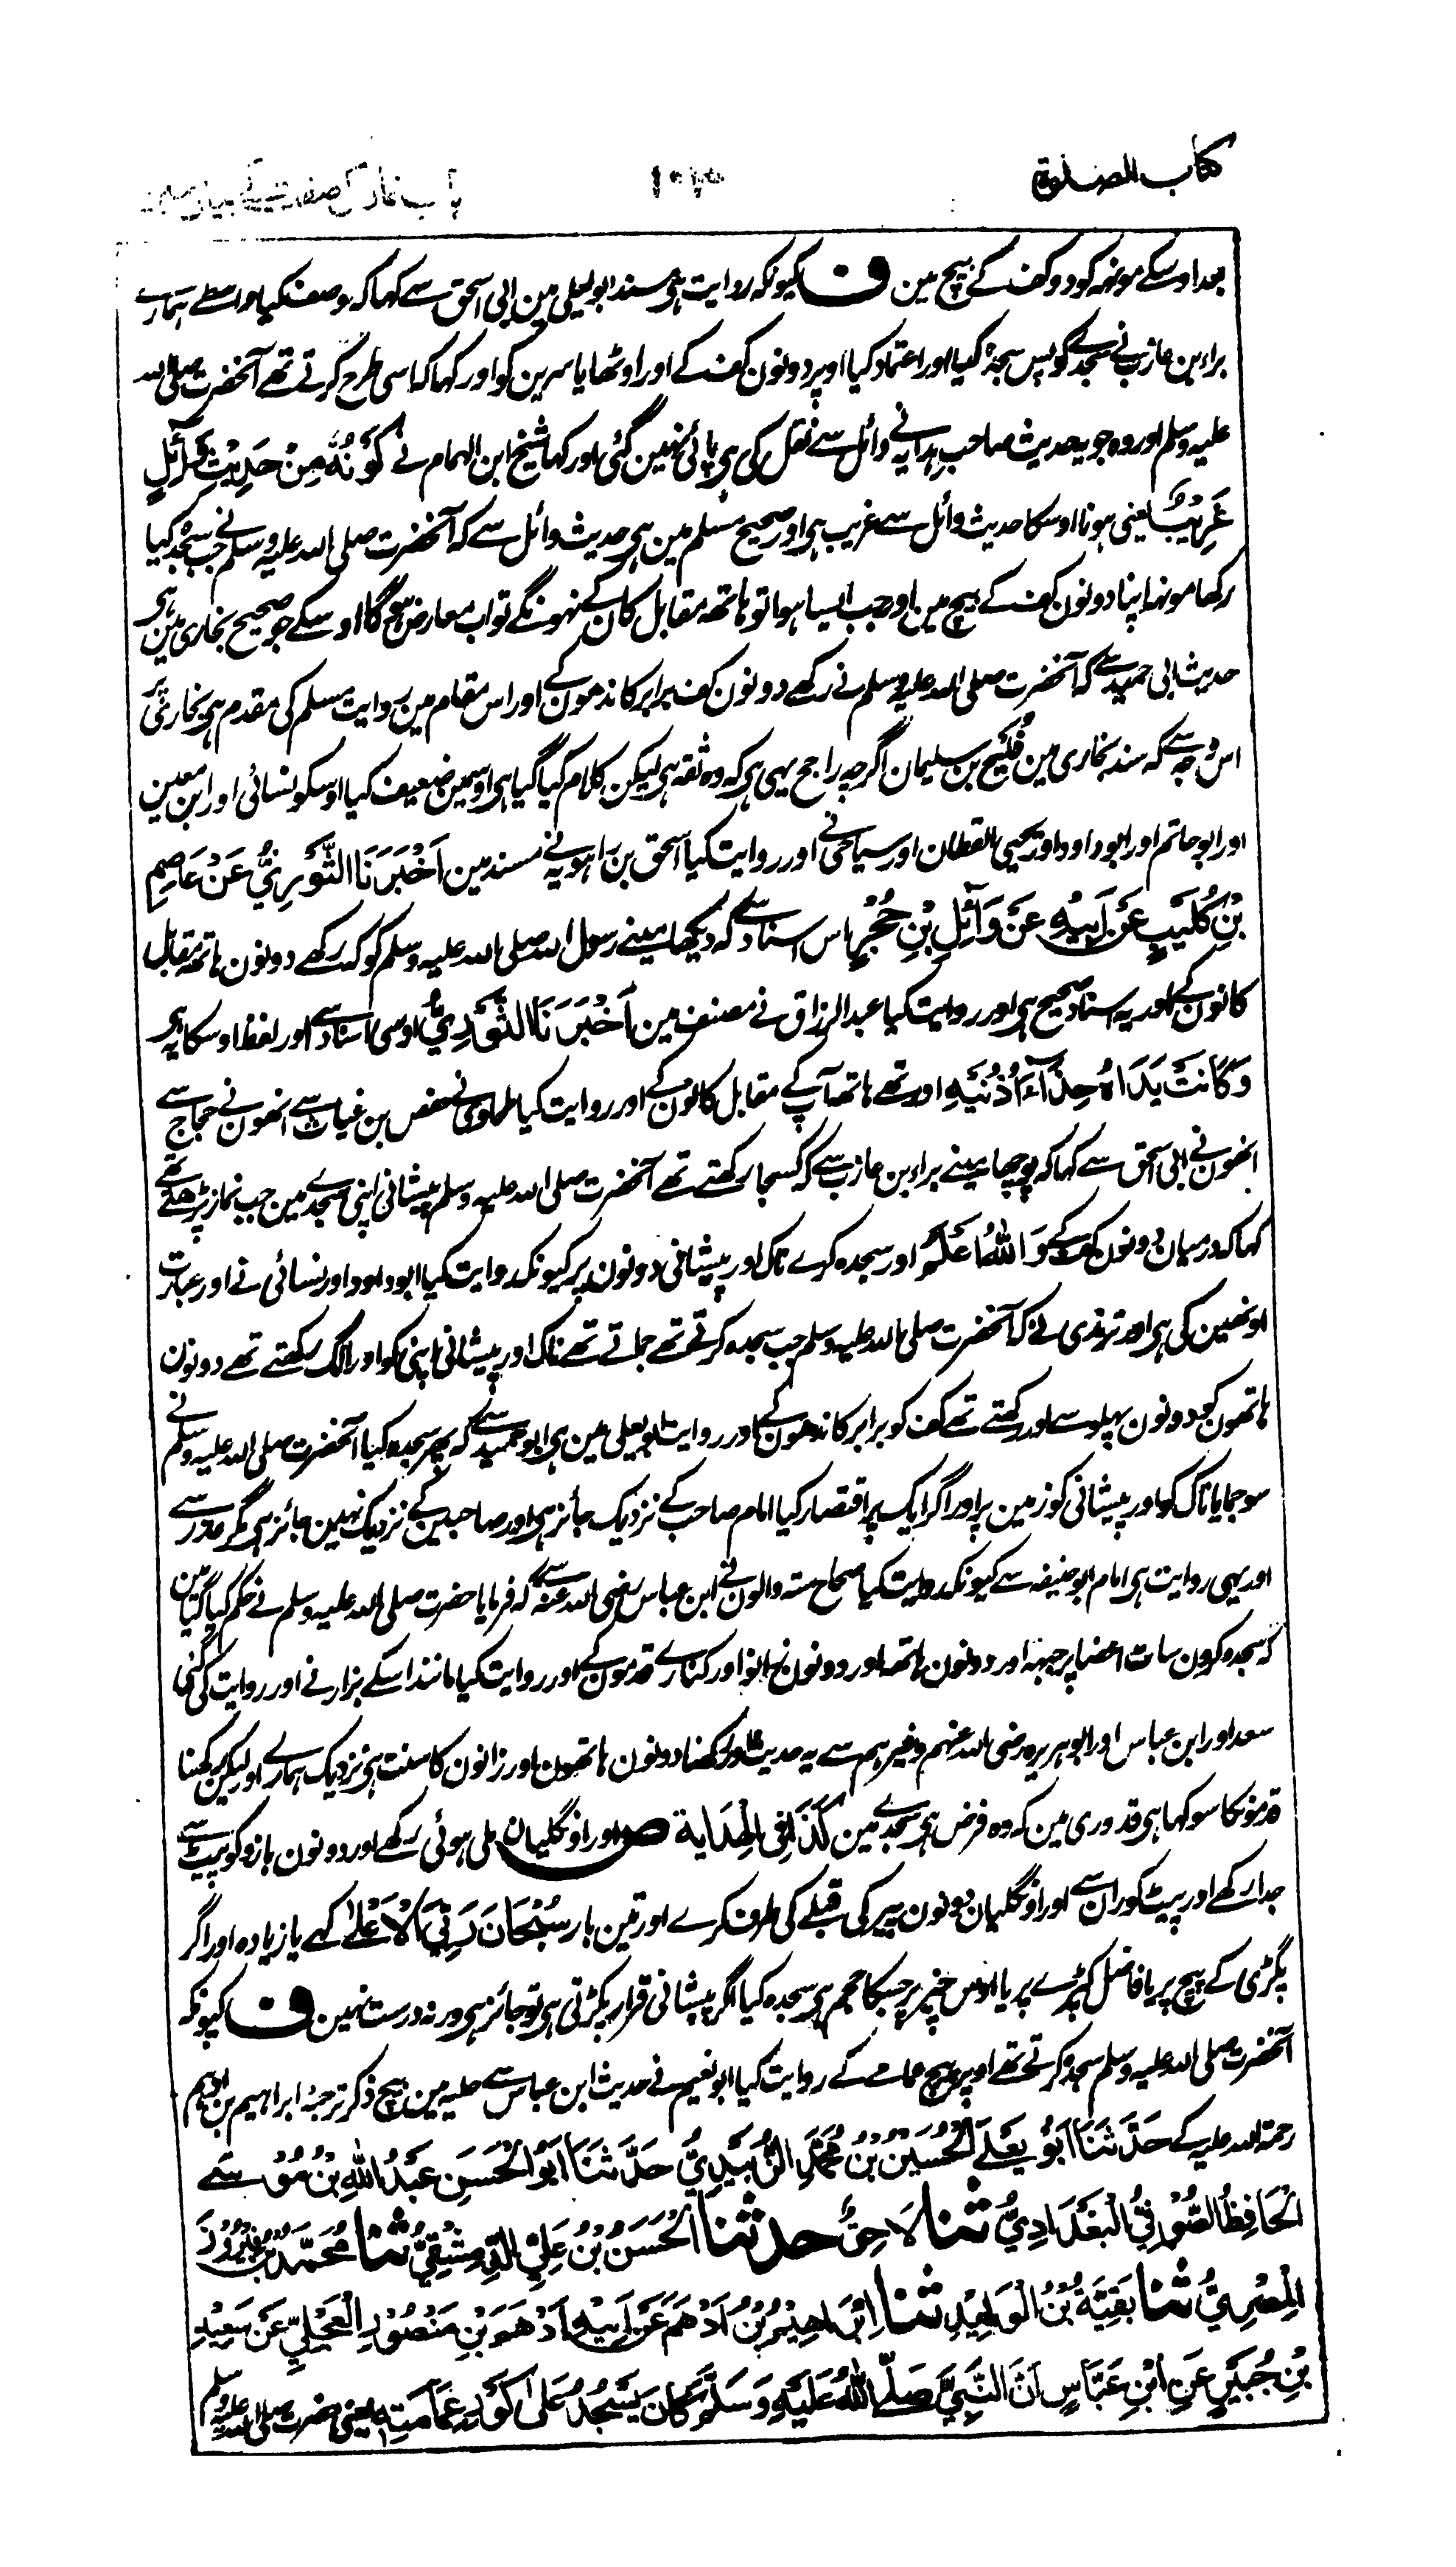 کتاب الصلوة
۱۰۴
باب نماز کی صفت کے بیان مین
بعد اوسکے مونہہ کو دو کف کے بیچ مین ف کیونکہ روایت ہی مسند ابو یعلی مین ابی اسحق سے کہا کہ وصف کیا واسطے ہمارے
براء بن عازب نے سجدے کو پس سجدہ کیا اور اعتماد کیا اوپر دونون کف کے اور اوٹھایا سرین کو اور کہا کہ اسی طرح کرتے تھے آنحضرت صلی اللہ
علیہ وسلم اور وہ جو یہ حدیث صاحب ہدایہ نے وائل سے نقل کی ہی پائی نہین گئی اور کہا شیخ ابن الہمام نے کَوْنُهُ مِنْ حَدِیْثِ وَائِلٍ
غَرِیْبٌ یعنی ہونا اوسکا حدیث وائل سے غریب ہی اور صحیح مسلم مین ہی حدیث وائل سے کہ آنحضرت صلی اللہ علیہ وسلم نے جب سجدہ کیا
رکھا مونہہ اپنا دونون کف کے بیچ مین اور جب ایسا ہوا تو ہاتھ مقابل کان کے نہونگے تو اب معارض ہوگا اوسکے جو صحیح بخاری مین ہی
حدیث ابی حمید سے کہ آنحضرت صلی اللہ علیہ وسلم نے رکھے دونون کف برابر کاندھون کے اور اس مقام مین روایت مسلم کی مقدم ہی بخاری پر
اس وجہ سے کہ سند بخاری مین فُلَیْح بن سلیمان اگرچہ راجح یہی ہی کہ وہ ثقہ ہی لیکن کلام کیا گیا ہی اوسمین ضعیف کیا اوسکو نسائی اور ابن معین
اور ابو حاتم اور ابو داود اور یحیی القطان اور ساجی نے اور روایت کیا اسحق بن راہویہ نے مسند مین اَخْبَرَنَا الثَّوْرِیُّ عَنْ عَاصِمِ
بْنِ كُلَیْبٍ عَنْ اَبِیْهِ عَنْ وَائِلِ بْنِ حُجْرٍ اس اسناد سے کہ دیکھا مینے رسول اللہ صلی اللہ علیہ وسلم کو کہ رکھے دونون ہاتھ مقابل
کانون کے اور یہ اسناد صحیح ہی اور روایت کیا عبد الرزاق نے مصنف مین اَخْبَرَنَا الثَّوْرِیُّ اوسی اسناد سے اور لفظ اوسکا یہ ہی
وَكَانَتْ یَدَاهُ حِذَاءَ اُذُنَیْهِ اور تھے ہاتھ آپ کے مقابل کانون کے اور روایت کیا طحاوی نے حفص بن غیاث سے انھون نے حجاج سے
انھون نے ابی اسحق سے کہا کہ پوچھا مینے براء بن عازب سے کہ کس جا رکھتے تھے آنحضرت صلی اللہ علیہ وسلم پیشانی اپنی سجدے مین جب نماز پڑھتے تھے
کہا کہ درمیان دونون کف کے وَاللهُ اَعْلَمُ اور سجدہ کرے ناک اور پیشانی دونون پر کیونکہ روایت کیا ابوداود اور نسائی نے اور عبارت
اونھین کی ہی اور ترمذی نے کہ آنحضرت صلی اللہ علیہ وسلم جب سجدہ کرتے تھے جماتے تھے ناک اور پیشانی اپنی کو اور الگ رکھتے تھے دونون
ہاتھون کو دونون پہلو سے اور رکھتے تھے کف کو برابر کاندھون کے اور روایت ابو یعلی مین ہی ابو حمید سے کہ پھر سجدہ کیا آنحضرت صلی اللہ علیہ وسلم نے
سو جمایا ناک کو اور پیشانی کو زمین پر اور اگر ایک پر اقتصار کیا امام صاحب کے نزدیک جائز ہی اور صاحبین کے نزدیک نہین جائز ہی مگر عذر سے
اور یہی روایت ہی امام ابو حنیفہ سے کیونکہ روایت کیا صحاح ستہ والون نے ابن عباس رضی اللہ عنہ سے کہ فرمایا حضرت صلی اللہ علیہ وسلم نے حکم کیا گیا مین
کہ سجدہ کرون سات اعضا پر جبہہ اور دونون ہاتھ اور دونون زانو اور کنارے قدمون کے اور روایت کیا مانند اسکے بزار نے اور روایت کی گئی
سعد اور ابن عباس اور ابو ہریرہ رضی اللہ عنہم وغیرہم سے یہ حدیث اور رکھنا دونون ہاتھون اور زانون کا سنت ہی نزدیک ہمارے اور لیکن رکھنا
قدمونکا سو کہا ہی قدوری مین کہ وہ فرض ہی سجدے مین كَذَا فِی الْهِدَایَة ص اور اونگلیان ملی ہوئی رکھے اور دونون بازو کو پیٹ سے
جدا رکھے اور پیٹ کو ران سے اور اونگلیان دونون پیر کی قبلے کی طرف کرے اور تین بار سُبْحَانَ رَبِّیَ الْاَعْلٰی کہے یا زیادہ اور اگر
پگڑی کے پیچ پر یا فاضل کپڑے پر یا اوس چیز پر جسکا حجم ہی سجدہ کیا اگر پیشانی قرار پکڑتی ہی تو جائز ہی ورنہ درست نہین ف کیونکہ
آنحضرت صلی اللہ علیہ وسلم سجدہ کرتے تھے اوپر پیچ عمامے کے روایت کیا ابو نعیم نے حدیث ابن عباس سے حلیہ مین بیچ ذکر ترجمۂ ابراہیم بن ادہم
رحمۃ اللہ علیہ کے حَدَّثَنَا اَبُوْ یَعْلَی الْحُسَیْنُ بْنُ مُحَمَّدٍ الزُّبَیْدِیُّ حَدَّثَنَا اَبُو الْحَسَنِ عَبْدُ اللهِ بْنُ مُوْسٰی
الْحَافِظُ الصُّوْفِیُّ الْبَغْدَادِیُّ ثنا لَاحِقٌ حدثنا الْحَسَنُ بْنُ عَلِیٍّ الدِّمِشْقِیُّ ثنا مُحَمَّدُ بْنُ فَیْرُوْزَ
الْمِصْرِیُّ ثنا بَقِیَّةُ بْنُ الْوَلِیْدِ ثنا اِبْرَاهِیْمُ بْنُ اَدْهَمَ عَنْ اَبِیْهِ اَدْهَمَ بْنِ مَنْصُوْرٍ الْعَجْلِیِّ عَنْ سَعِیْدِ
بْنِ جُبَیْرٍ عَنِ ابْنِ عَبَّاسٍ اَنَّ النَّبِیَّ صَلَّی اللهُ عَلَیْهِ وَسَلَّمَ كَانَ یَسْجُدُ عَلٰی كَوْرِ عِمَامَتِهِ یعنی حضرت صلی اللہ علیہ وسلم